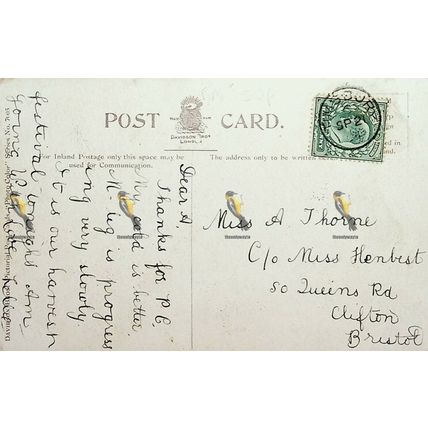 POST CARD.
DAVIDSON BROS
LONDON
For Inland Postage only this space may be
used for Communication.
The address only to be written
SP 21
Dear A.
Thanks for P.C.
My cold is better.
M— is progress
ing very slowly.
It is our harvest
festival tonight. Am
going
Miss A Thorne
C/o Miss Henbest
50 Queens Rd
Clifton
Bristol